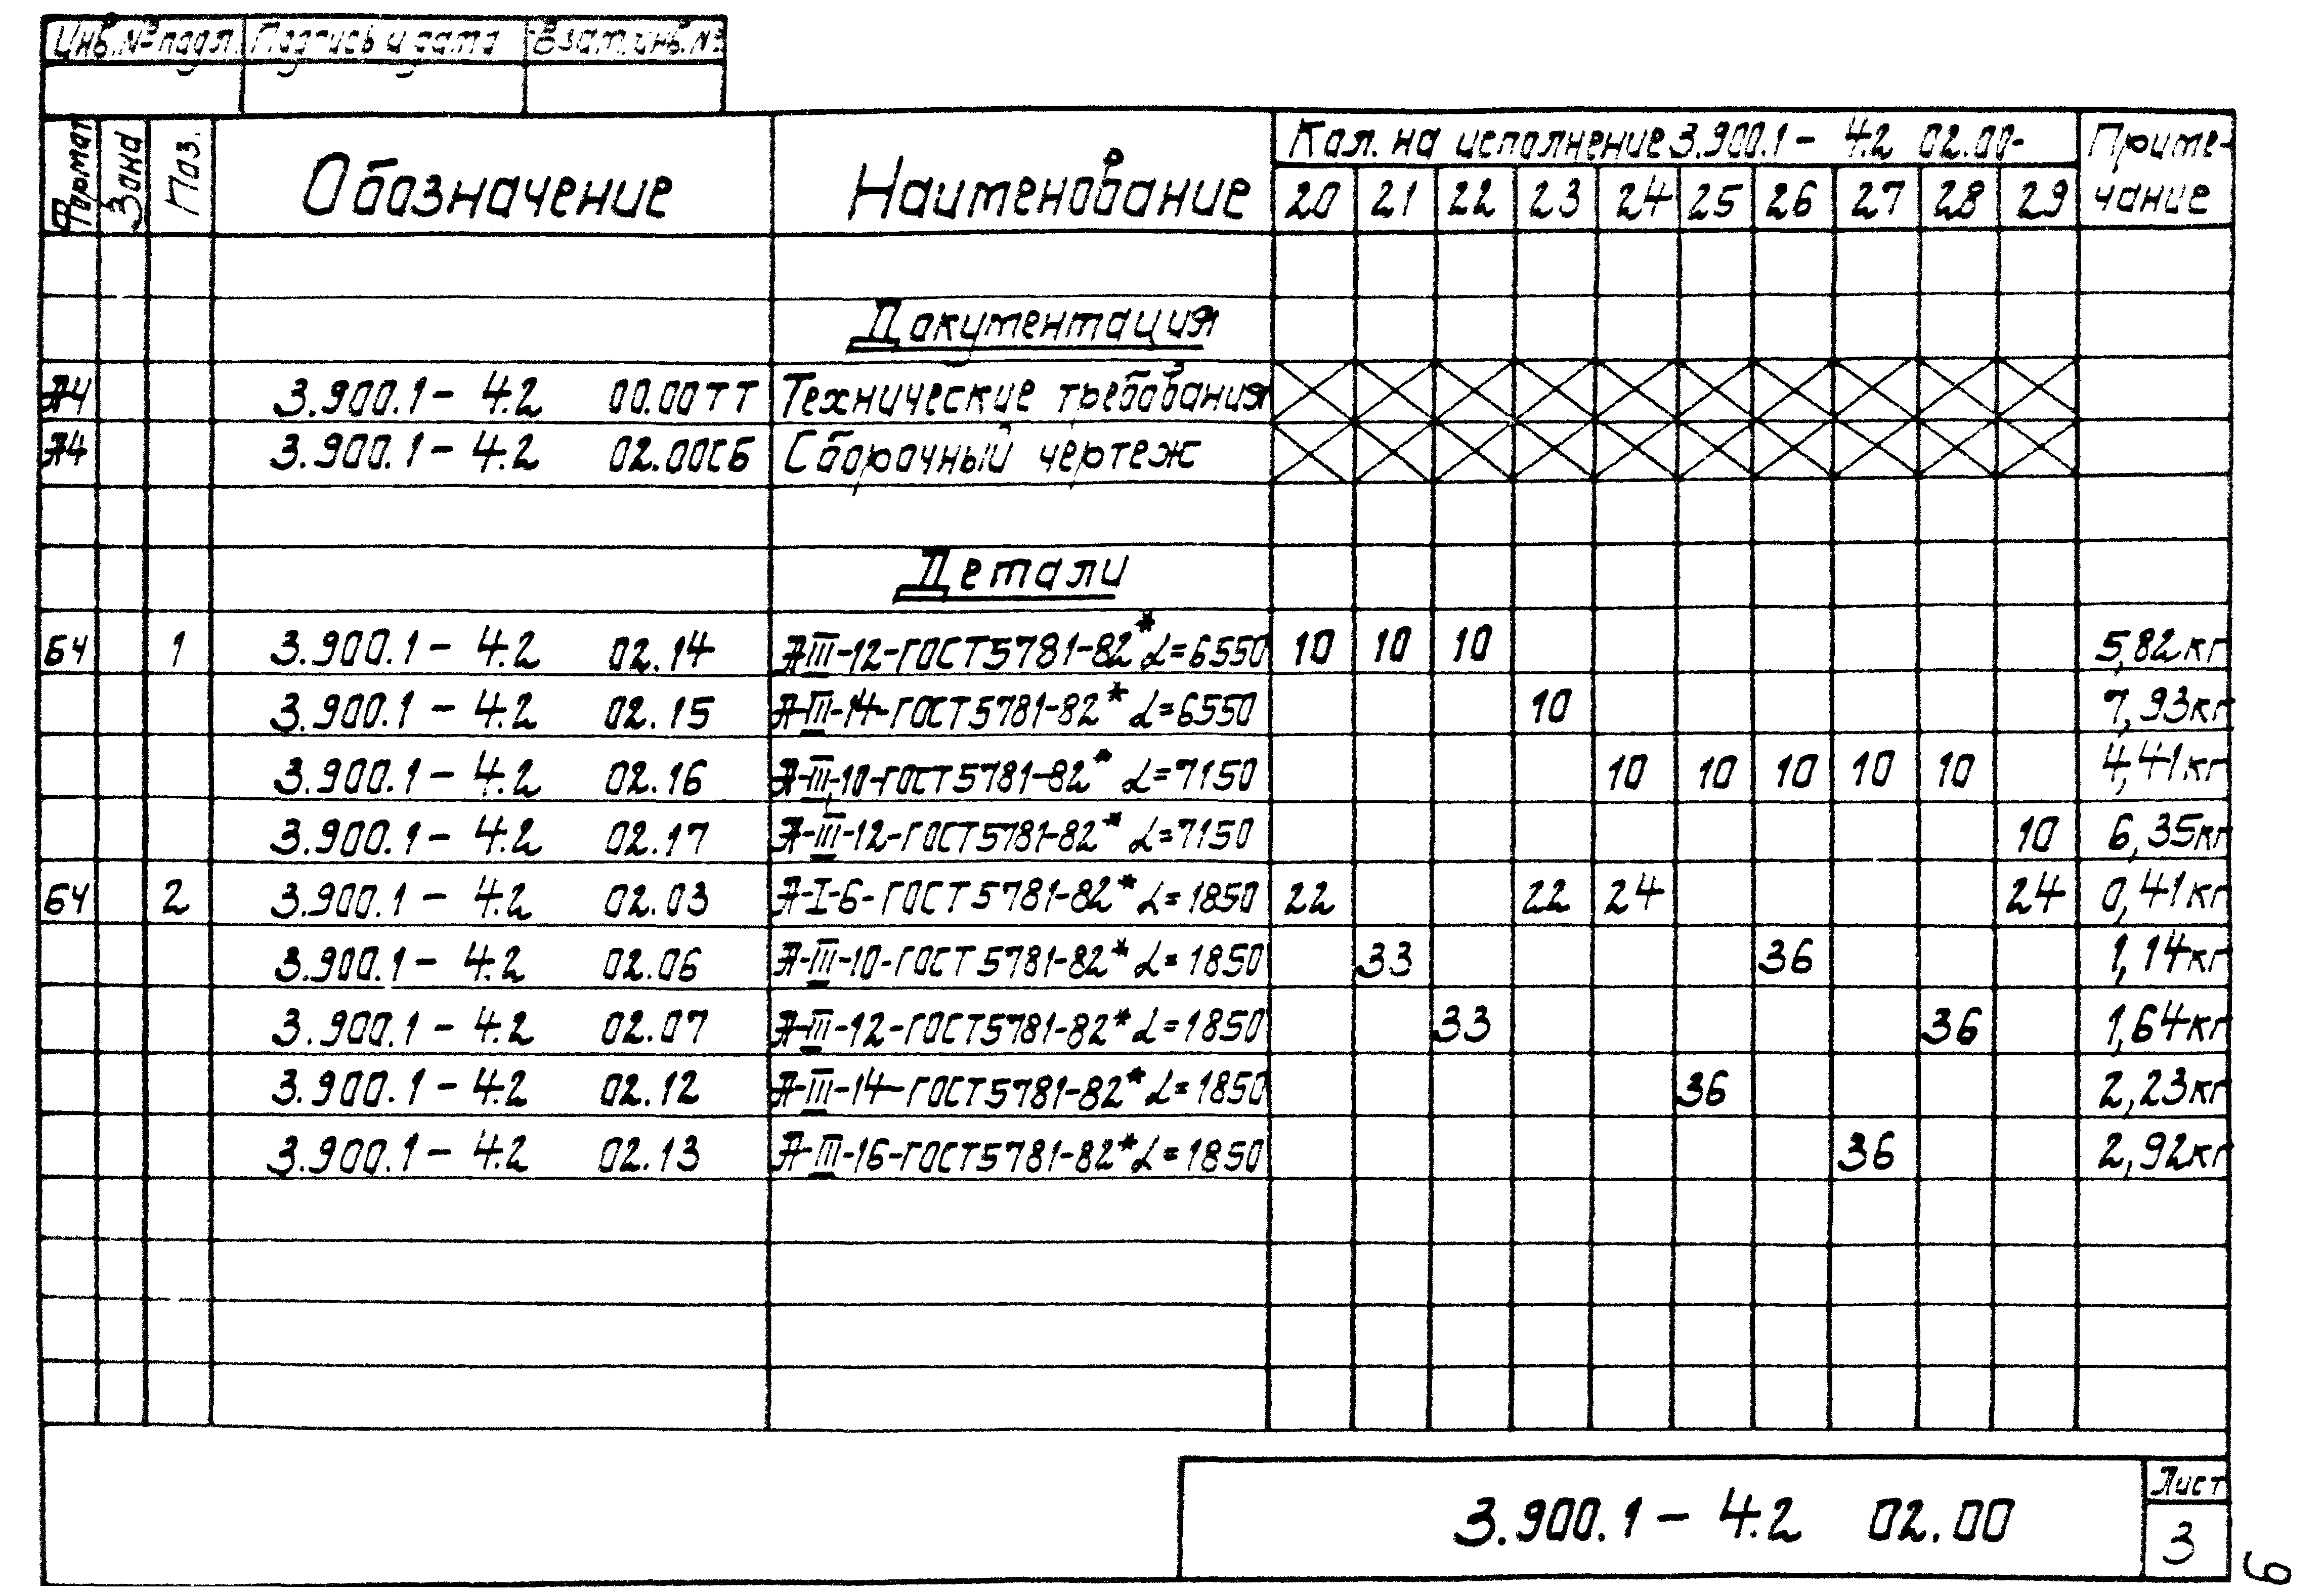 Инв.№ подл. Подпись и дата Взам.инв.№
Формат Зона Поз. Обозначение Наименование Кол. на исполнение 3.900.1 - 4.2 02.00- Приме-
20 21 22 23 24 25 26 27 28 29 чание
Документация
А4 3.900.1 - 4.2 00.00ТТ Технические требования
А4 3.900.1 - 4.2 02.00СБ Сборочный чертеж
Детали
БЧ 1 3.900.1 - 4.2 02.14 АIII-12-ГОСТ5781-82* L=6550 10 10 10 5,82кг
3.900.1 - 4.2 02.15 А-III-14-ГОСТ5781-82* L=6550 10 7,93кг
3.900.1 - 4.2 02.16 А-III-10-ГОСТ5781-82* L=7150 10 10 10 10 10 4,41кг
3.900.1 - 4.2 02.17 А-III-12-ГОСТ5781-82* L=7150 10 6,35кг
БЧ 2 3.900.1 - 4.2 02.03 А-I-6-ГОСТ5781-82* L=1850 22 22 24 24 0,41кг
3.900.1 - 4.2 02.06 А-III-10-ГОСТ5781-82* L=1850 33 36 1,14кг
3.900.1 - 4.2 02.07 А-III-12-ГОСТ5781-82* L=1850 33 36 1,64кг
3.900.1 - 4.2 02.12 А-III-14-ГОСТ5781-82* L=1850 36 2,23кг
3.900.1 - 4.2 02.13 А-III-16-ГОСТ5781-82* L=1850 36 2,92кг
3.900.1 - 4.2 02.00
Лист
3
6